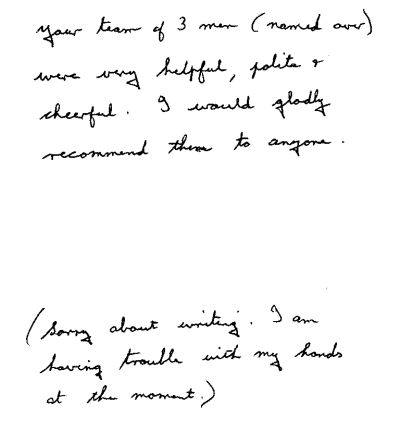 your team of 3 men (named over)
were very helpful, polite &
cheerful. I would gladly
recommend them to anyone.
(Sorry about writing. I am
having trouble with my hands
at the moment.)